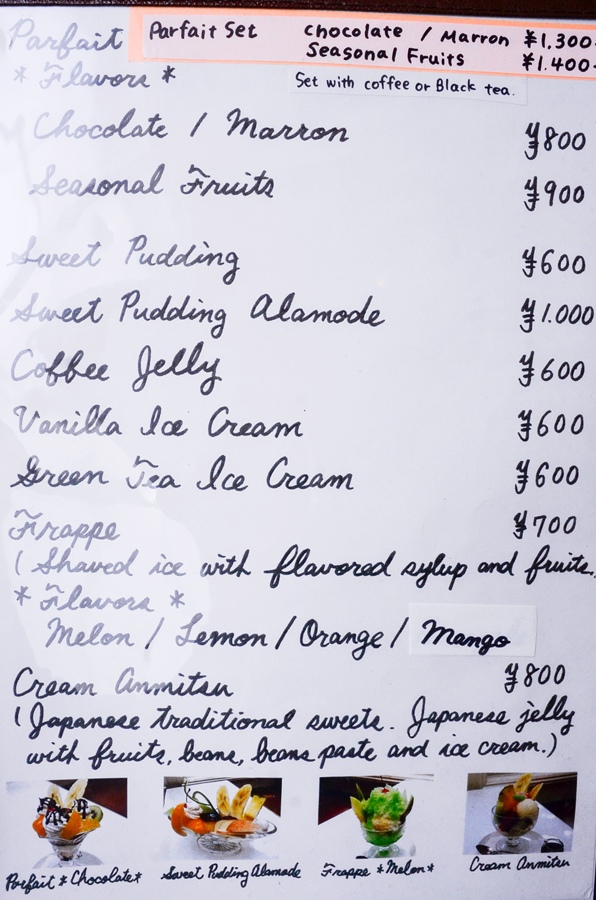 Parfait
Parfait Set Chocolate / Marron ¥1.300-
Seasonal Fruits ¥1.400-
* Flavors *
Set with coffee or Black tea.
Chocolate / Marron ¥800
Seasonal Fruits ¥900
Sweet Pudding ¥600
Sweet Pudding Alamode ¥1.000
Coffee Jelly ¥600
Vanilla Ice Cream ¥600
Green Tea Ice Cream ¥600
Frappe ¥700
(Shaved ice with flavored sylup and fruits.
* Flavors *
Melon / Lemon / Orange / Mango
Cream Anmitsu ¥800
(Japanese traditional sweets. Japanese jelly
with fruits, beans, beans paste and ice cream.)
Parfait *Chocolate*
Sweet Pudding Alamode
Frappe *Melon*
Cream Anmitsu